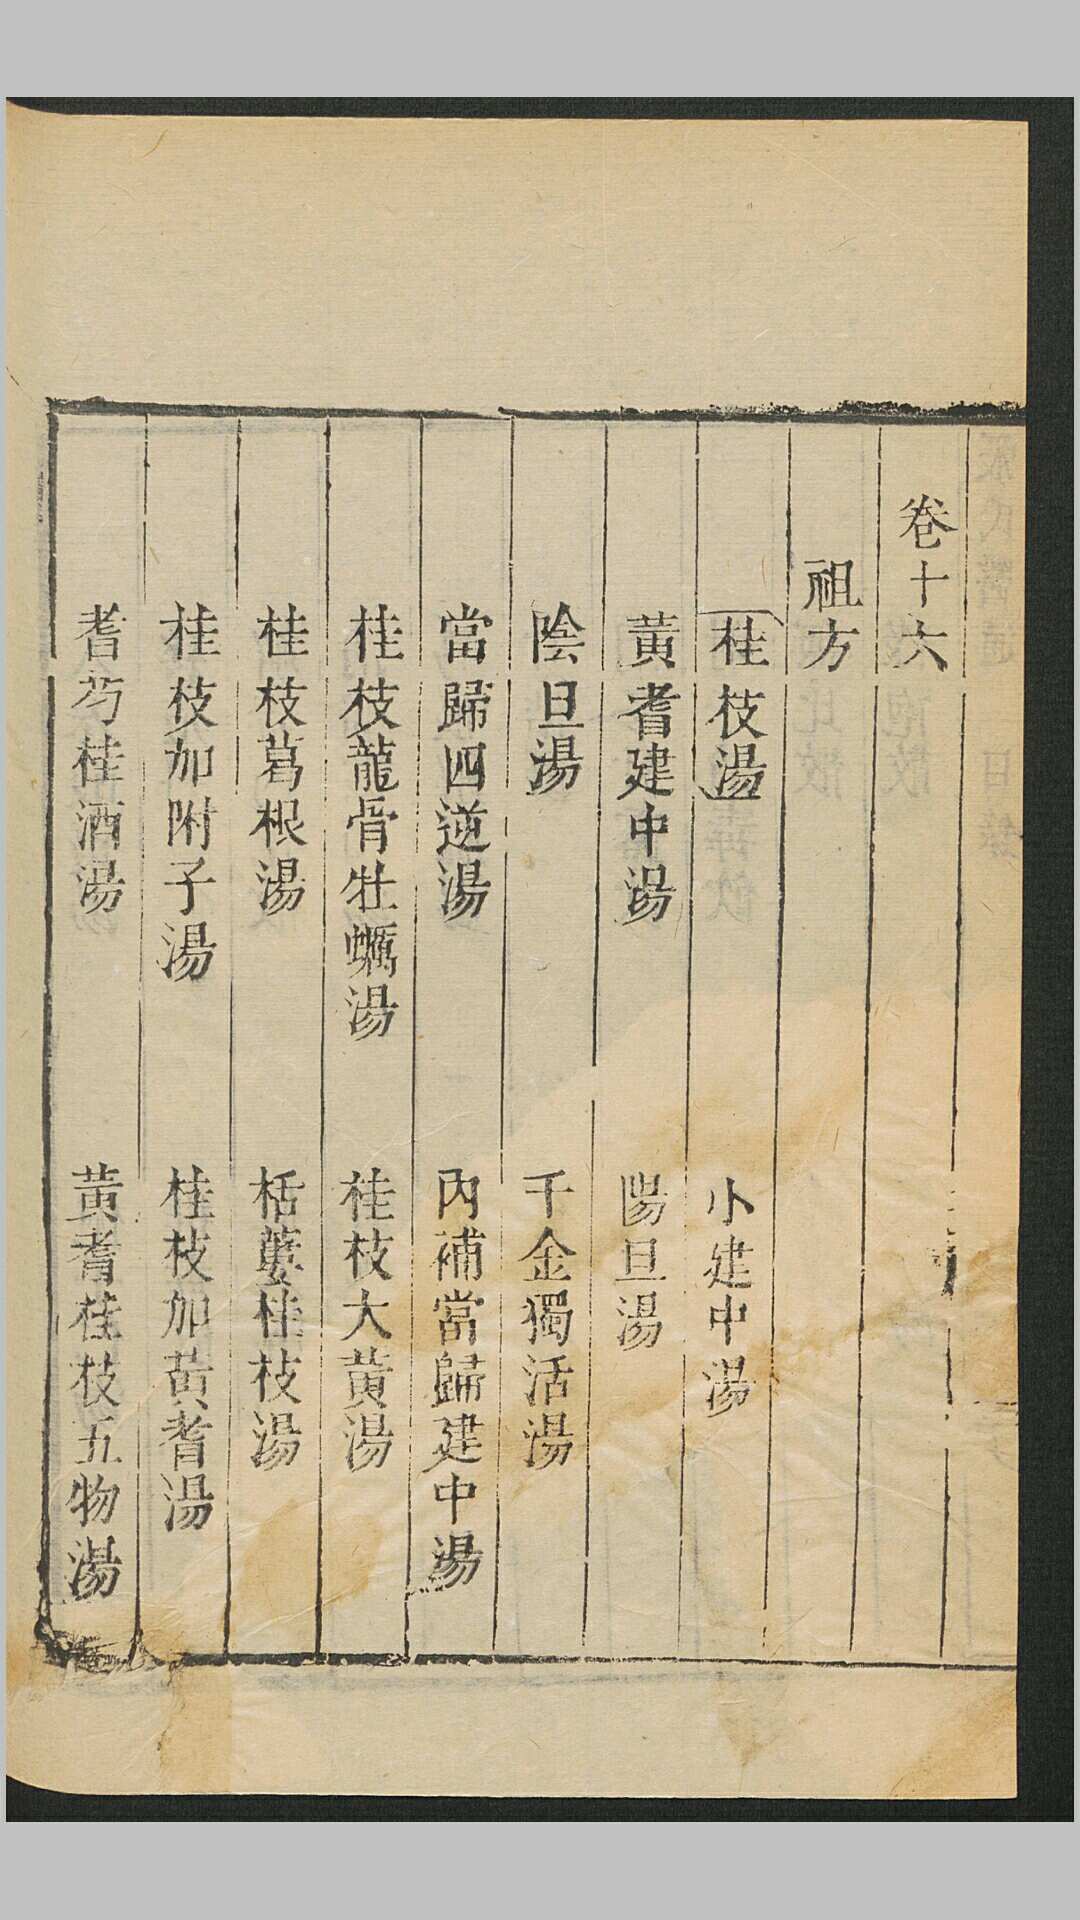 卷十六
祖方
桂枝湯
小建中湯
黃耆建中湯
陽旦湯
陰旦湯
千金獨活湯
當歸四逆湯
內補當歸建中湯
桂枝龍骨牡蠣湯
桂枝大黃湯
桂枝葛根湯
栝蔞桂枝湯
桂枝加附子湯
桂枝加黃耆湯
耆芍桂酒湯
黃耆桂枝五物湯